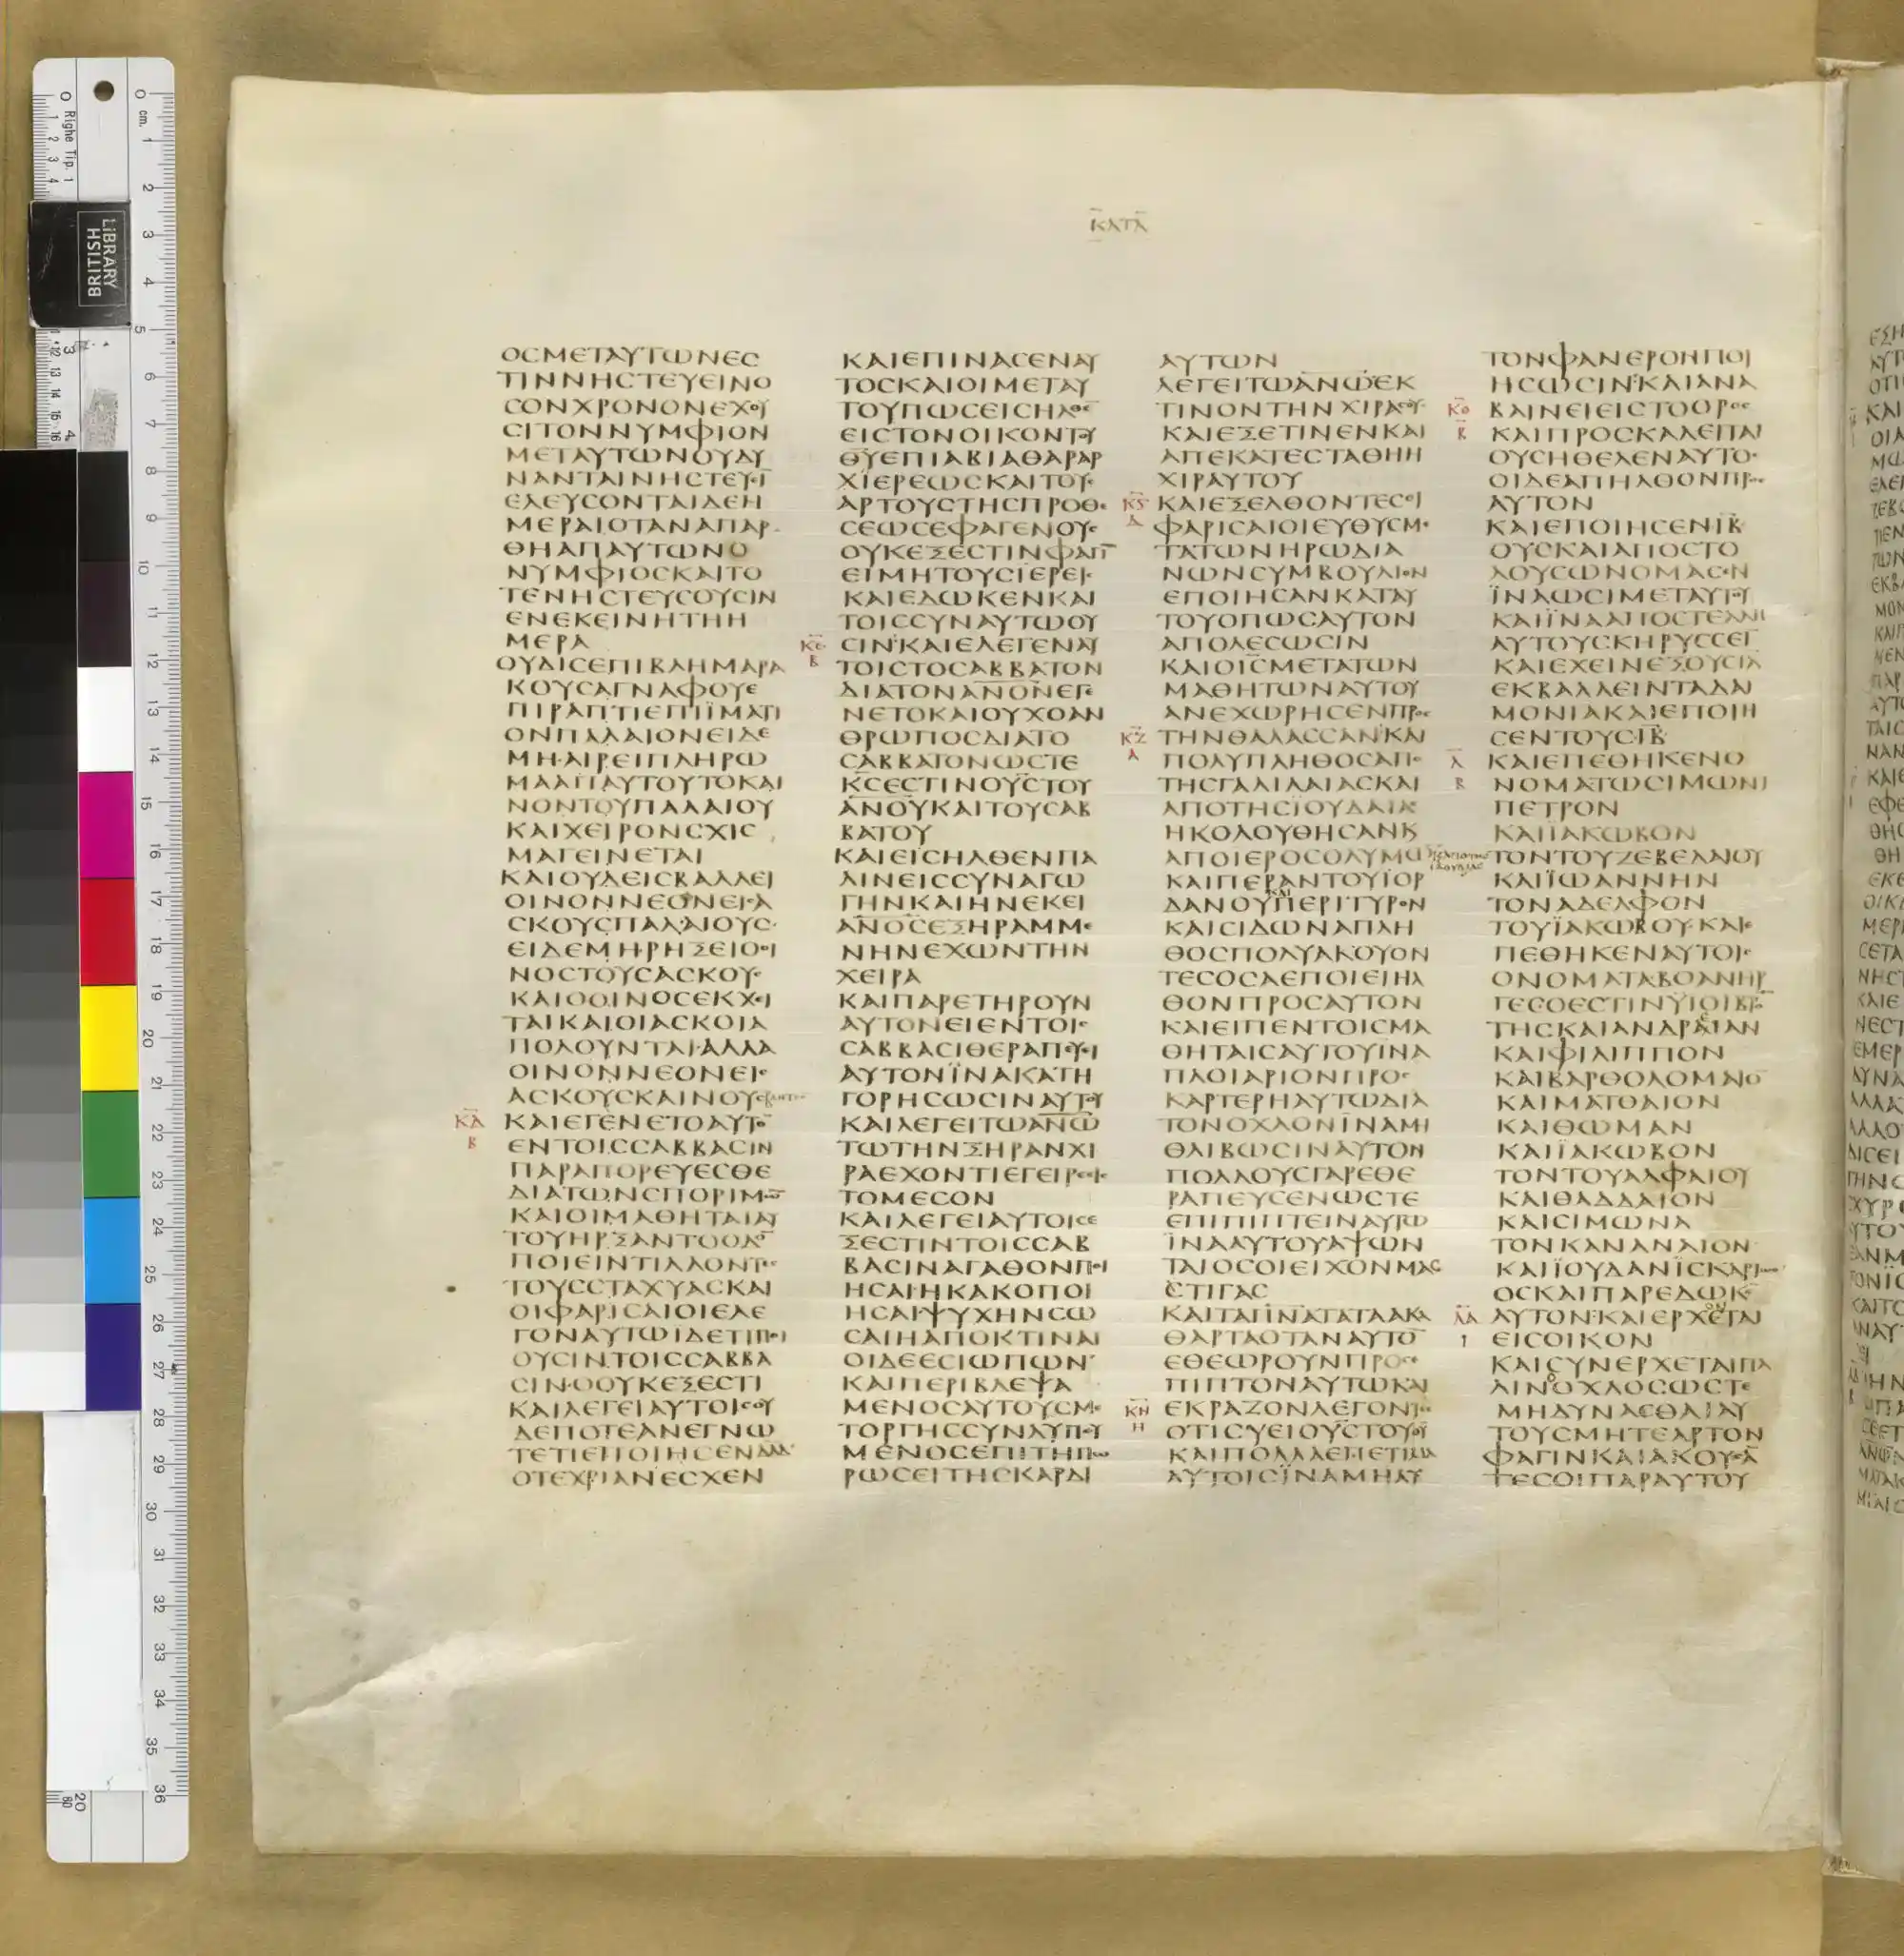 ΚΑΤΑ
ΟϹΜΕΤΑΥΤΩΝΕϹ
ΤΙΝΝΗϹΤΕΥΕΙΝΟ
ϹΟΝΧΡΟΝΟΝΕΧΟΥ
ϹΙΤΟΝΝΥΜΦΙΟΝ
ΜΕΤΑΥΤΩΝΟΥΔΥ
ΝΑΝΤΑΙΝΗϹΤΕΥΙ
ΕΛΕΥϹΟΝΤΑΙΔΕΗ
ΜΕΡΑΙΟΤΑΝΑΠΑΡ
ΘΗΑΠΑΥΤΩΝΟ
ΝΥΜΦΙΟϹΚΑΙΤΟ
ΤΕΝΗϹΤΕΥϹΟΥϹΙΝ
ΕΝΕΚΕΙΝΗΤΗΗ
ΜΕΡΑ
ΟΥΔΙϹΕΠΙΒΛΗΜΑΡΑ
ΚΟΥϹΑΓΝΑΦΟΥΕ
ΠΙΡΑΠΤΙΕΠΙΪΜΑΤΙ
ΟΝΠΑΛΑΙΟΝΕΙΔΕ
ΜΗΑΙΡΕΙΠΛΗΡΩ
ΜΑΑΠΑΥΤΟΥΤΟΚΑΙ
ΝΟΝΤΟΥΠΑΛΑΙΟΥ
ΚΑΙΧΕΙΡΟΝϹΧΙϹ
ΜΑΓΕΙΝΕΤΑΙ
ΚΑΙΟΥΔΕΙϹΒΑΛΛΕΙ
ΟΙΝΟΝΝΕΟΝΕΙΑ
ϹΚΟΥϹΠΑΛΑΙΟΥϹ
ΕΙΔΕΜΗΡΗΞΕΙΟΟΙ
ΝΟϹΤΟΥϹΑϹΚΟΥ
ΚΑΙΟΟΙΝΟϹΕΚΧΙ
ΤΑΙΚΑΙΟΙΑϹΚΟΙΑ
ΠΟΛΟΥΝΤΑΙΑΛΛΑ
ΟΙΝΟΝΝΕΟΝΕΙϹ
ΑϹΚΟΥϹΚΑΙΝΟΥϹ
ΚΔ ΚΑΙΕΓΕΝΕΤΟΑΥΤΟ
Β ΕΝΤΟΙϹϹΑΒΒΑϹΙΝ
ΠΑΡΑΠΟΡΕΥΕϹΘΕ
ΔΙΑΤΩΝϹΠΟΡΙΜΩ
ΚΑΙΟΙΜΑΘΗΤΑΙΑΥ
ΤΟΥΗΡΞΑΝΤΟΟΔΟ
ΠΟΙΕΙΝΤΙΛΛΟΝΤΕϹ
ΤΟΥϹϹΤΑΧΥΑϹΚΑΙ
ΟΙΦΑΡΙϹΑΙΟΙΕΛΕ
ΓΟΝΑΥΤΩΙΔΕΤΙΠΟΙ
ΟΥϹΙΝΤΟΙϹϹΑΒΒΑ
ϹΙΝΟΟΥΚΕΞΕϹΤΙ
ΚΑΙΛΕΓΕΙΑΥΤΟΙϹΟΥ
ΔΕΠΟΤΕΑΝΕΓΝΩ
ΤΕΤΙΕΠΟΙΗϹΕΝΔΑΔ
ΟΤΕΧΡΙΑΝΕϹΧΕΝ
ΚΑΙΕΠΙΝΑϹΕΝΑΥ
ΤΟϹΚΑΙΟΙΜΕΤΑΥ
ΤΟΥΠΩϹΕΙϹΗΛΘΕ
ΕΙϹΤΟΝΟΙΚΟΝΤΟΥ
ΘΥΕΠΙΑΒΙΑΘΑΡΑΡ
ΧΙΕΡΕΩϹΚΑΙΤΟΥϹ
ΑΡΤΟΥϹΤΗϹΠΡΟΘΕ
ϹΕΩϹΕΦΑΓΕΝΟΥϹ
ΟΥΚΕΞΕϹΤΙΝΦΑΓΙ
ΕΙΜΗΤΟΥϹΪΕΡΕΙϹ
ΚΑΙΕΔΩΚΕΝΚΑΙ
ΤΟΙϹϹΥΝΑΥΤΩΟΥ
ΚΕ ϹΙΝΚΑΙΕΛΕΓΕΝΑΥ
Β ΤΟΙϹΤΟϹΑΒΒΑΤΟΝ
ΔΙΑΤΟΝΑΝΟΝΕΓΕ
ΝΕΤΟΚΑΙΟΥΧΟΑΝ
ΘΡΩΠΟϹΔΙΑΤΟ
ϹΑΒΒΑΤΟΝΩϹΤΕ
ΚϹΕϹΤΙΝΟΥϹΤΟΥ
ΑΝΟΥΚΑΙΤΟΥϹΑΒ
ΒΑΤΟΥ
ΚΑΙΕΙϹΗΛΘΕΝΠΑ
ΛΙΝΕΙϹϹΥΝΑΓΩ
ΓΗΝΚΑΙΗΝΕΚΕΙ
ΑΝΟϹΕΞΗΡΑΜΜΕ
ΝΗΝΕΧΩΝΤΗΝ
ΧΕΙΡΑ
ΚΑΙΠΑΡΕΤΗΡΟΥΝ
ΑΥΤΟΝΕΙΕΝΤΟΙϹ
ϹΑΒΒΑϹΙΘΕΡΑΠΕΥΕΙ
ΑΥΤΟΝΪΝΑΚΑΤΗ
ΓΟΡΗϹΩϹΙΝΑΥΤΟΥ
ΚΑΙΛΕΓΕΙΤΩΑΝΩ
ΤΩΤΗΝΞΗΡΑΝΧΙ
ΡΑΕΧΟΝΤΙΕΓΕΙΡΕΕΙϹ
ΤΟΜΕϹΟΝ
ΚΑΙΛΕΓΕΙΑΥΤΟΙϹΕ
ΞΕϹΤΙΝΤΟΙϹϹΑΒ
ΒΑϹΙΝΑΓΑΘΟΝΠΟΙ
ΗϹΑΙΗΚΑΚΟΠΟΙ
ΗϹΑΙΨΥΧΗΝϹΩ
ϹΑΙΗΑΠΟΚΤΙΝΑΙ
ΟΙΔΕΕϹΙΩΠΩΝ
ΚΑΙΠΕΡΙΒΛΕΨΑ
ΜΕΝΟϹΑΥΤΟΥϹΜΕ
ΤΟΡΓΗϹϹΥΝΛΥΠΟΥ
ΜΕΝΟϹΕΠΙΤΗΠΩ
ΡΩϹΕΙΤΗϹΚΑΡΔΙ
ΑΥΤΩΝ
ΛΕΓΕΙΤΩΑΝΩΕΚ
ΤΙΝΟΝΤΗΝΧΙΡΑϹΟΥ
ΚΑΙΕΞΕΤΙΝΕΝΚΑΙ
ΑΠΕΚΑΤΕϹΤΑΘΗΗ
ΧΙΡΑΥΤΟΥ
ΚϚ ΚΑΙΕΞΕΛΘΟΝΤΕϹΟΙ
Δ ΦΑΡΙϹΑΙΟΙΕΥΘΥϹΜΕ
ΤΑΤΩΝΗΡΩΔΙΑ
ΝΩΝϹΥΜΒΟΥΛΙΟΝ
ΕΠΟΙΗϹΑΝΚΑΤΑΥ
ΤΟΥΟΠΩϹΑΥΤΟΝ
ΑΠΟΛΕϹΩϹΙΝ
ΚΑΙΟΙϹΜΕΤΑΤΩΝ
ΜΑΘΗΤΩΝΑΥΤΟΥ
ΑΝΕΧΩΡΗϹΕΝΠΡΟϹ
ΚΖ ΤΗΝΘΑΛΑϹϹΑΝΚΑΙ
Α ΠΟΛΥΠΛΗΘΟϹΑΠΟ
ΤΗϹΓΑΛΙΛΑΙΑϹΚΑΙ
ΑΠΟΤΗϹΪΟΥΔΑΙΑϹ
ΗΚΟΛΟΥΘΗϹΑΝΚ
ΑΠΟΙΕΡΟϹΟΛΥΜΩ
ΚΑΙΠΕΡΑΝΤΟΥΙΟΡ
ΚΑΙ
ΔΑΝΟΥΠΕΡΙΤΥΡΟΝ
ΚΑΙϹΙΔΩΝΑΠΛΗ
ΘΟϹΠΟΛΥΑΚΟΥΟΝ
ΤΕϹΟϹΑΕΠΟΙΕΙΗΛ
ΘΟΝΠΡΟϹΑΥΤΟΝ
ΚΑΙΕΙΠΕΝΤΟΙϹΜΑ
ΘΗΤΑΙϹΑΥΤΟΥΪΝΑ
ΠΛΟΙΑΡΙΟΝΠΡΟϹ
ΚΑΡΤΕΡΗΑΥΤΩΔΙΑ
ΤΟΝΟΧΛΟΝΪΝΑΜΗ
ΘΛΙΒΩϹΙΝΑΥΤΟΝ
ΠΟΛΛΟΥϹΓΑΡΕΘΕ
ΡΑΠΕΥϹΕΝΩϹΤΕ
ΕΠΙΠΙΠΤΕΙΝΑΥΤΩ
ΪΝΑΑΥΤΟΥΑΨΩΝ
ΤΑΙΟϹΟΙΕΙΧΟΝΜΑϹ
ϹΤΙΓΑϹ
ΚΑΙΤΑΠΝΑΤΑΤΑΑΚΑ
ΘΑΡΤΑΟΤΑΝΑΥΤΟ
ΕΘΕΩΡΟΥΝΠΡΟϹΕ
ΠΙΠΤΟΝΑΥΤΩΚΑΙ
ΚΗ ΕΚΡΑΖΟΝΛΕΓΟΝΤΕϹ
Η ΟΤΙϹΥΕΙΟΥϹΤΟΥΘΥ
ΚΑΙΠΟΛΛΑΕΠΕΤΙΜΑ
ΑΥΤΟΙϹΪΝΑΜΗΑΥ
ΤΟΝΦΑΝΕΡΟΝΠΟΙ
ΗϹΩϹΙΝΚΑΙΑΝΑ
ΚΘ ΒΑΙΝΕΙΕΙϹΤΟΟΡΟϹ
Β ΚΑΙΠΡΟϹΚΑΛΕΙΤΑΙ
ΟΥϹΗΘΕΛΕΝΑΥΤΟϹ
ΟΙΔΕΑΠΗΛΘΟΝΠΡΟϹ
ΑΥΤΟΝ
ΚΑΙΕΠΟΙΗϹΕΝΙΒ
ΟΥϹΚΑΙΑΠΟϹΤΟ
ΛΟΥϹΩΝΟΜΑϹΕΝ
ΪΝΑΩϹΙΜΕΤΑΥΤΟΥ
ΚΑΙΪΝΑΑΠΟϹΤΕΛΛΗ
ΑΥΤΟΥϹΚΗΡΥϹϹΕΙ
ΚΑΙΕΧΕΙΝΕΞΟΥϹΙΑ
ΕΚΒΑΛΛΕΙΝΤΑΔΑΙ
ΜΟΝΙΑΚΑΙΕΠΟΙΗ
ϹΕΝΤΟΥϹΙΒ
Λ ΚΑΙΕΠΕΘΗΚΕΝΟ
Β ΝΟΜΑΤΩϹΙΜΩΝΙ
ΠΕΤΡΟΝ
ΚΑΙΙΑΚΩΒΟΝ
ΤΟΝΤΟΥΖΕΒΕΔΑΙΟΥ
ΚΑΙΪΩΑΝΝΗΝ
ΤΟΝΑΔΕΛΦΟΝ
ΤΟΥΪΑΚΩΒΟΥΚΑΙΕ
ΠΕΘΗΚΕΝΑΥΤΟΙϹ
ΟΝΟΜΑΤΑΒΟΑΝΗΡ
ΓΕϹΟΕϹΤΙΝΫΙΟΙΒΡΟ
ΤΗϹΚΑΙΑΝΔΡΑΙΑΝ
ΚΑΙΦΙΛΙΠΠΟΝ
ΚΑΙΒΑΡΘΟΛΟΜΑΙΟ
ΚΑΙΜΑΤΘΑΙΟΝ
ΚΑΙΘΩΜΑΝ
ΚΑΙΪΑΚΩΒΟΝ
ΤΟΝΤΟΥΑΛΦΑΙΟΥ
ΚΑΙΘΑΔΔΑΙΟΝ
ΚΑΙϹΙΜΩΝΑ
ΤΟΝΚΑΝΑΝΑΙΟΝ
ΚΑΙΪΟΥΔΑΝΪϹΚΑΡΙΩΘ
ΟϹΚΑΙΠΑΡΕΔΩΚΕ
ΛΑ ΑΥΤΟΝΚΑΙΕΡΧΕΤΑΙ
Ι ΕΙϹΟΙΚΟΝ
ΚΑΙϹΥΝΕΡΧΕΤΑΙΠΑ
ΛΙΝΟΧΛΟϹΩϹΤΕ
ΜΗΔΥΝΑϹΘΑΙΑΥ
ΤΟΥϹΜΗΤΕΑΡΤΟΝ
ΦΑΓΙΝΚΑΙΑΚΟΥϹΑ
ΤΕϹΟΙΠΑΡΑΥΤΟΥ
BRITISH
LIBRARY
Righe Tip. 1
cm.